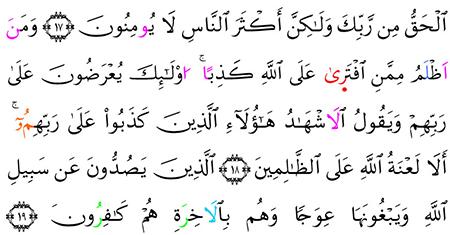 ٱلْحَقُّ مِن رَّبِّكَ وَلَٰكِنَّ أَكْثَرَ ٱلنَّاسِ لَا يُومِنُونَ ۝١٧ وَمَنَ
اَظْلَمُ مِمَّنِ ٱفْتَرَىٰ عَلَى ٱللَّهِ كَذِبًا ۚ اوْلَٰٓئِكَ يُعْرَضُونَ عَلَىٰ
رَبِّهِمْ وَيَقُولُ ٱلَاشْهَٰدُ هَٰٓؤُلَآءِ ٱلَّذِينَ كَذَبُوا۟ عَلَىٰ رَبِّهِمُۥٓ ۚ
أَلَا لَعْنَةُ ٱللَّهِ عَلَى ٱلظَّٰلِمِينَ ۝١٨ ٱلَّذِينَ يَصُدُّونَ عَن سَبِيلِ
ٱللَّهِ وَيَبْغُونَهَا عِوَجًا وَهُم بِٱلَاخِرَةِ هُمْ كَٰفِرُونَ ۝١٩